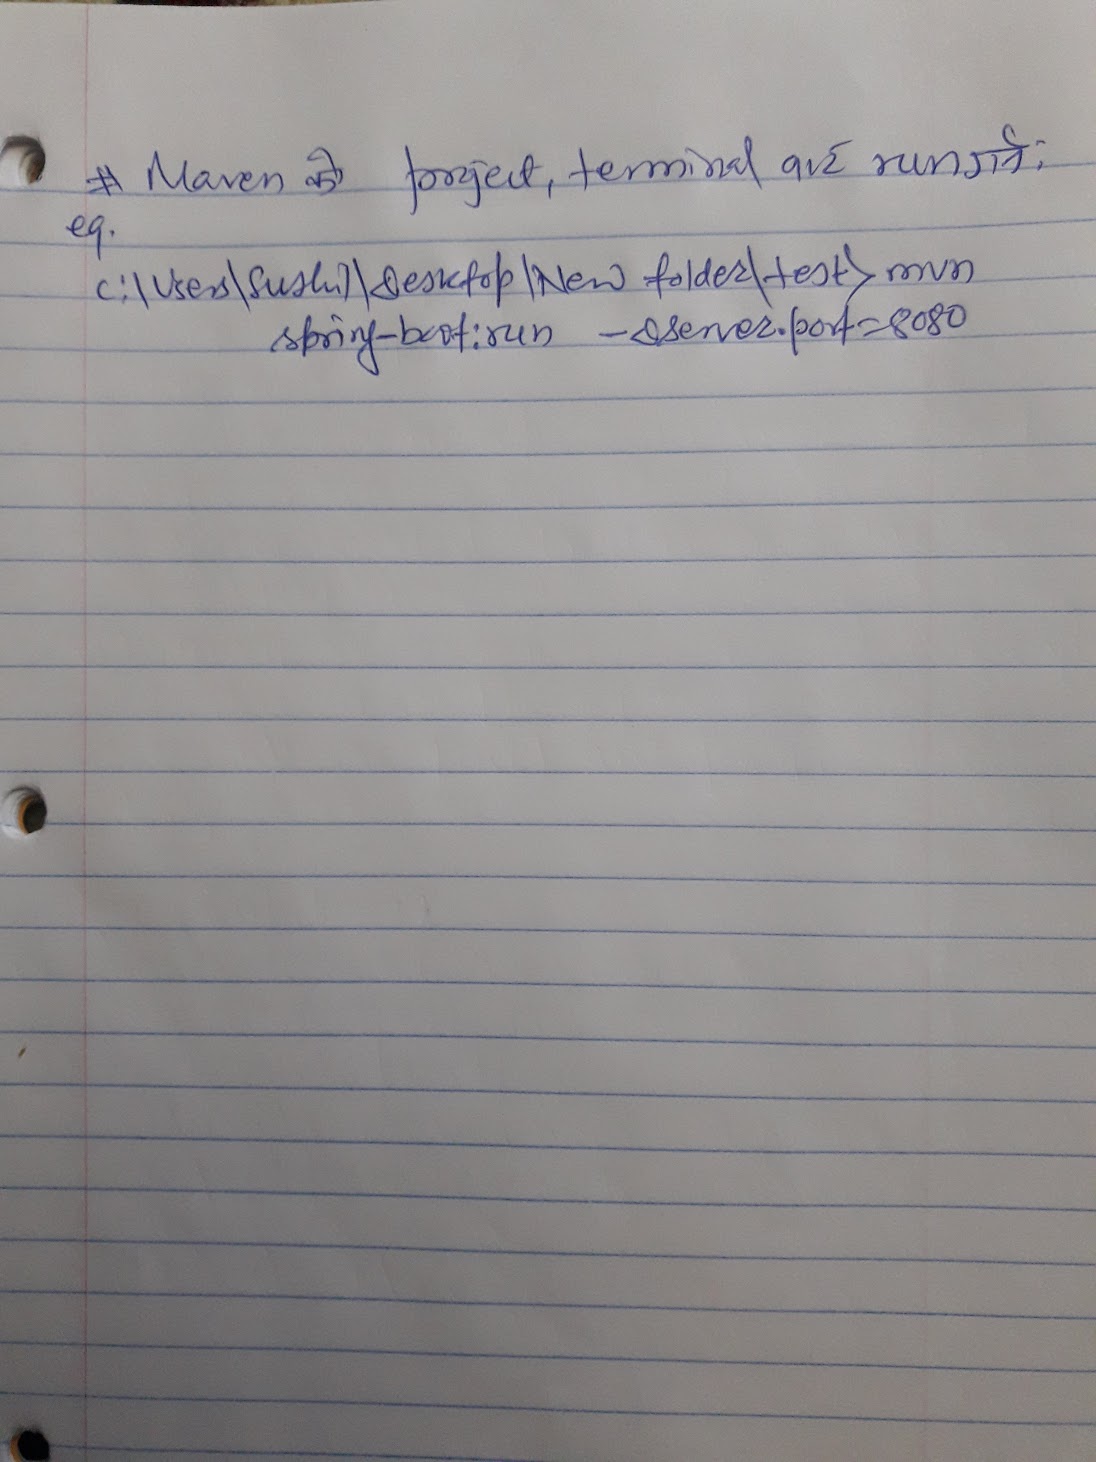 # Maven को project, terminal बाट run गर्ने:
eg.
C:\Users\Sushil\Desktop\New folder\test> mvn
spring-boot:run -Dserver.port=8080